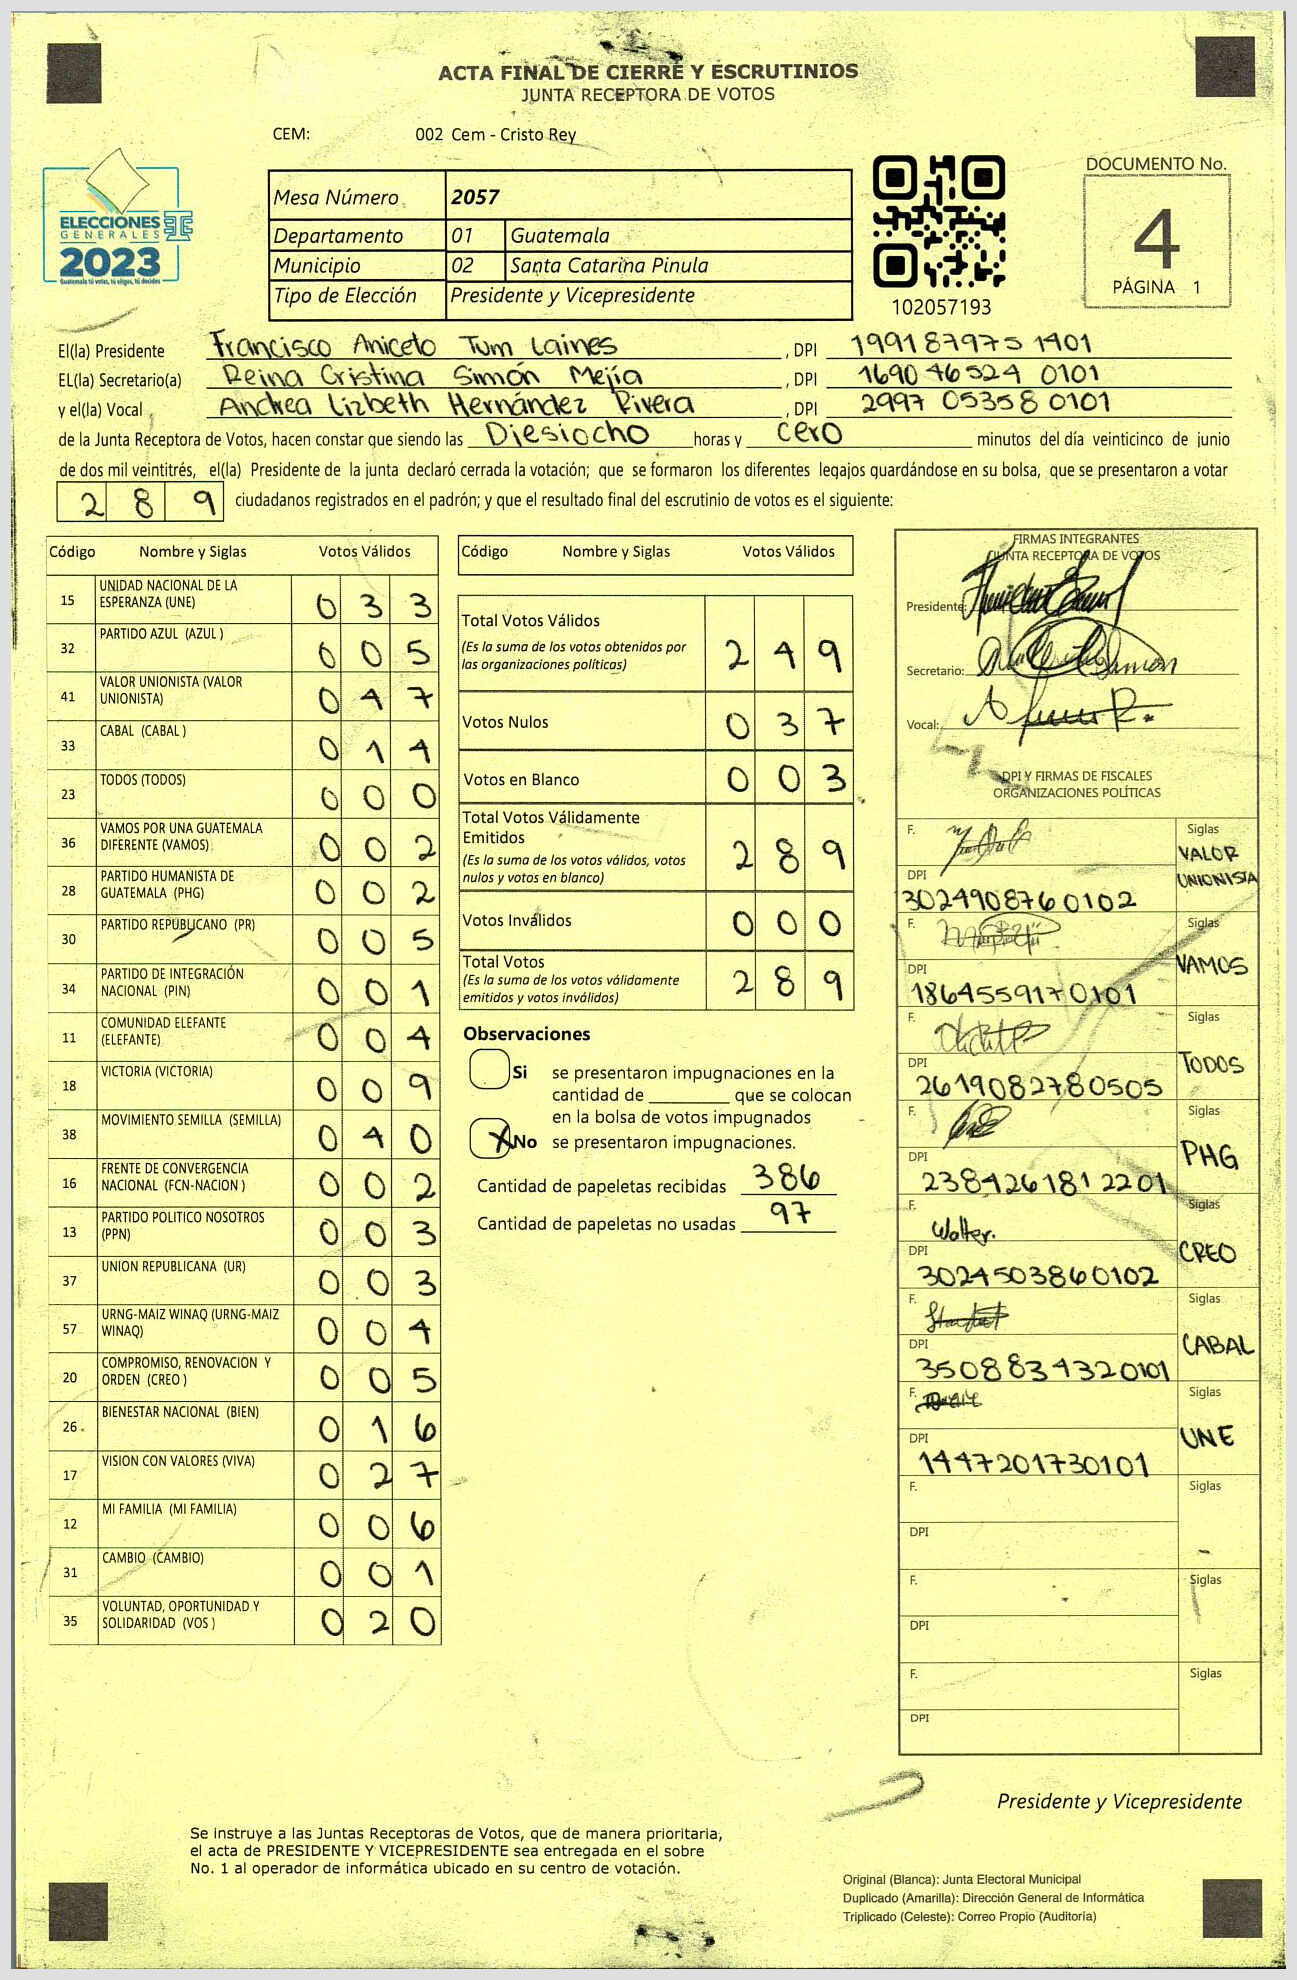 ACTA FINAL DE CIERRE Y ESCRUTINIOS
JUNTA RECEPTORA DE VOTOS
CEM: 002 Cem - Cristo Rey
ELECCIONES
GENERALES
2023
Guatemala tú votas, tú eliges, tú decides
Mesa Número 2057
Departamento 01 Guatemala
Municipio 02 Santa Catarina Pinula
Tipo de Elección Presidente y Vicepresidente
102057193
DOCUMENTO No.
4
PÁGINA 1
El(la) Presidente Francisco Aniceto Tum Laines , DPI 1991 87975 1401
EL(la) Secretario(a) Reina Cristina Simón Mejía , DPI 1690 46524 0101
y el(la) Vocal Andrea Lizbeth Hernández Rivera , DPI 2997 05358 0101
de la Junta Receptora de Votos, hacen constar que siendo las Diesiocho horas y cero minutos del día veinticinco de junio
de dos mil veintitrés, el(la) Presidente de la junta declaró cerrada la votación; que se formaron los diferentes legajos guardándose en su bolsa, que se presentaron a votar
2 8 9 ciudadanos registrados en el padrón; y que el resultado final del escrutinio de votos es el siguiente:
Código Nombre y Siglas Votos Válidos
15 UNIDAD NACIONAL DE LA ESPERANZA (UNE) 0 3 3
32 PARTIDO AZUL (AZUL ) 0 0 5
41 VALOR UNIONISTA (VALOR UNIONISTA) 0 4 7
33 CABAL (CABAL ) 0 1 4
23 TODOS (TODOS) 0 0 0
36 VAMOS POR UNA GUATEMALA DIFERENTE (VAMOS) 0 0 2
28 PARTIDO HUMANISTA DE GUATEMALA (PHG) 0 0 2
30 PARTIDO REPUBLICANO (PR) 0 0 5
34 PARTIDO DE INTEGRACIÓN NACIONAL (PIN) 0 0 1
11 COMUNIDAD ELEFANTE (ELEFANTE) 0 0 4
18 VICTORIA (VICTORIA) 0 0 9
38 MOVIMIENTO SEMILLA (SEMILLA) 0 4 0
16 FRENTE DE CONVERGENCIA NACIONAL (FCN-NACION ) 0 0 2
13 PARTIDO POLITICO NOSOTROS (PPN) 0 0 3
37 UNION REPUBLICANA (UR) 0 0 3
57 URNG-MAIZ WINAQ (URNG-MAIZ WINAQ) 0 0 4
20 COMPROMISO, RENOVACION Y ORDEN (CREO ) 0 0 5
26 BIENESTAR NACIONAL (BIEN) 0 1 6
17 VISION CON VALORES (VIVA) 0 2 7
12 MI FAMILIA (MI FAMILIA) 0 0 6
31 CAMBIO (CAMBIO) 0 0 1
35 VOLUNTAD, OPORTUNIDAD Y SOLIDARIDAD (VOS ) 0 2 0
Código Nombre y Siglas Votos Válidos
Total Votos Válidos 2 4 9
(Es la suma de los votos obtenidos por
las organizaciones políticas)
Votos Nulos 0 3 7
Votos en Blanco 0 0 3
Total Votos Válidamente
Emitidos 2 8 9
(Es la suma de los votos válidos, votos
nulos y votos en blanco)
Votos Inválidos 0 0 0
Total Votos 2 8 9
(Es la suma de los votos válidamente
emitidos y votos inválidos)
Observaciones
Si se presentaron impugnaciones en la
cantidad de ________ que se colocan
en la bolsa de votos impugnados
X No se presentaron impugnaciones.
Cantidad de papeletas recibidas 386
Cantidad de papeletas no usadas 97
FIRMAS INTEGRANTES
JUNTA RECEPTORA DE VOTOS
Presidente:
Secretario:
Vocal:
DPI Y FIRMAS DE FISCALES
ORGANIZACIONES POLÍTICAS
F. Siglas
VALOR
UNIONISTA
DPI
3024908760102
F. Siglas
VAMOS
DPI
1864559170101
F. Siglas
TODOS
DPI
2619082780505
F. Siglas
PHG
DPI
2384261812201
F. Walter. Siglas
CREO
DPI
3024503860102
F. Siglas
CABAL
DPI
3508834320101
F. Siglas
UNE
DPI
1447201730101
F. Siglas
DPI
F. Siglas
DPI
F. Siglas
DPI
Presidente y Vicepresidente
Se instruye a las Juntas Receptoras de Votos, que de manera prioritaria,
el acta de PRESIDENTE Y VICEPRESIDENTE sea entregada en el sobre
No. 1 al operador de informática ubicado en su centro de votación.
Original (Blanca): Junta Electoral Municipal
Duplicado (Amarilla): Dirección General de Informática
Triplicado (Celeste): Correo Propio (Auditoría)